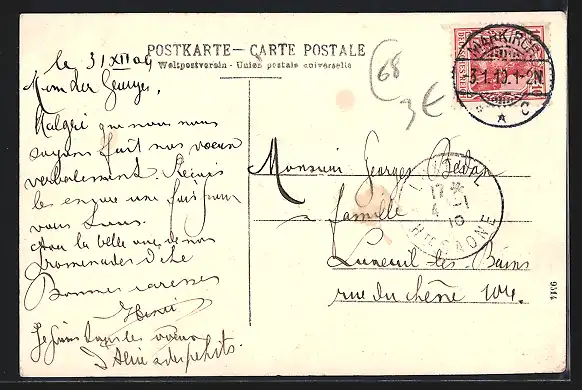 POSTKARTE – CARTE POSTALE
Weltpostverein - Union postale universelle
le 31 XII 09
Mon cher Georges,
Malgré que nous nous
soyons fait nos voeux
verbalement
les encore une fois pour
vous tous.
la belle vue de nos
promenades d'été
Bonnes caresses
Henri
Je joins tous les voeux
68
3€
MARKIRCH
3.1.10.1-2N
C
DEUTSCHES REICH
10
Monsieur Georges Bedon
famille
Luxeuil-les-Bains
rue du chêne
LUXEUIL
17
4 -1
10
HTE SAONE
9344